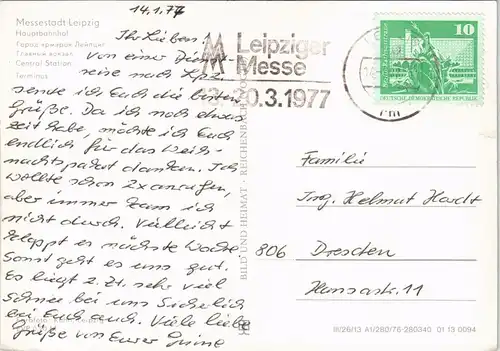 14.1.77
Messestadt Leipzig
Hauptbahnhof
Город ярмарок Лейпциг
Главный вокзал
Central Station
Terminus
Ihr Lieben!
Von einer Dienst-
reise nach Lpz.
sende ich Euch die besten
Grüße. Da ich noch etwas
Zeit habe, möchte ich Euch
endlich für das Weih-
nachtspaket danken. Ich
wollte schon 2x anrufen,
aber immer kam ich
nicht durch. Vielleicht
klappt es nächste Woche
Sonst geht es uns gut.
Es liegt z. Zt. sehr viel
Schnee bei uns Sicherlich
bei Euch auch. Viele liebe
Grüße von Eurer
Leipziger
Messe
20.3.1977
10
DEUTSCHE DEMOKRATISCHE REPUBLIK
BILD UND HEIMAT · REICHENBACH
Familie
Ing. Helmut Hardt
806 Dresden
Hansastr. 11
III/26/13 A1/280/76-280340 01 13 0094